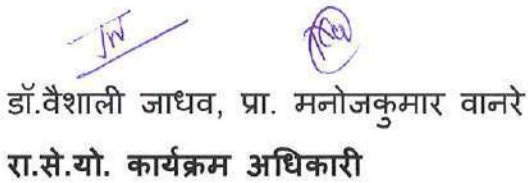 डॉ.वैशाली जाधव, प्रा. मनोजकुमार वानरे
रा.से.यो. कार्यक्रम अधिकारी